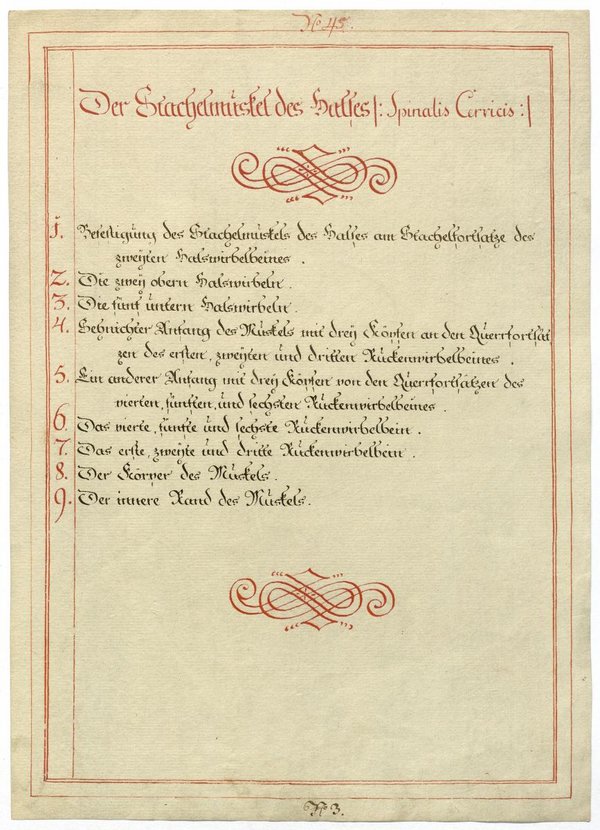 No 45.
Der Stachelmuskel des Halses |: Spinalis Cervicis :|
1. Befestigung des Stachelmuskels des Halses am Stachelfortsatze des
zweyten Halswirbelbeines .
2. Die zwey obern Halswirbeln .
3. Die fünf untern Halswirbeln .
4. Sehnichter Anfang des Muskels mit drey Köpfen an den Querrfortsät
zen des ersten, zweyten und dritten Rückenwirbelbeines .
5. Ein anderer Anfang mit drey Köpfen von den Querrfortsätzen des
vierten, fünften, und sechsten Rückenwirbelbeines .
6. Das vierte, fünfte und sechste Rückenwirbelbein .
7. Das erste, zweyte und dritte Rückenwirbelbein .
8. Der Körper des Muskels .
9. Der innere Rand des Muskels .
No 3.